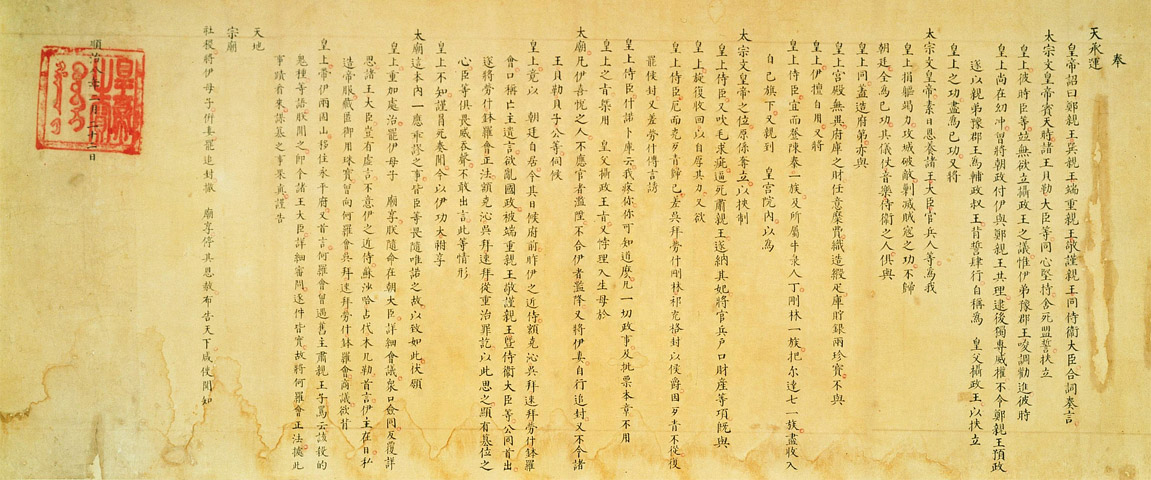 奉
天承運
皇帝詔曰鄭親王巽親王端重親王敬謹親王同侍衛大臣合詞奏言
太宗文皇帝賓天時諸王貝勒大臣等同心堅持舍死盟誓扶立
皇上彼時臣等並無欲立攝政王之議惟伊弟豫郡王唆調勸進彼時
皇上尚在幼冲曾將朝政付伊與鄭親王共理逮後獨專威權不令鄭親王預政
遂以親弟豫郡王為輔政叔王背誓肆行自稱為 皇父攝政王以扶立
皇上之功盡為己功又將
太宗文皇帝素日恩養諸王大臣官兵人等為我
皇上捐軀竭力攻城破敵剿滅賊寇之功不歸
朝廷全為己功其儀仗音樂侍衛之人俱與
皇上同蓋造府第亦與
皇上宮殿無異府庫之財任意糜費織造緞疋庫貯銀兩珍寶不與
皇上伊擅自用又將
皇上侍臣宜而登陳泰一族及所屬牛彔人丁剛林一族把尔達七一族盡收入
自己旗下又親到 皇宮院內以為
太宗文皇帝之位原係奪立以挾制
皇上侍臣又吹毛求疵逼死肅親王遂納其妃將官兵戶口財產等項既與
皇上旋復收回以自厚其力又欲
皇上侍臣厄而克歹青歸己差吳拜勞什剛林祁充格封以侯爵因歹青不從後
罷侯封又差勞什傳言謗
皇上侍臣什諾卜庫云我豢你你可知道麽凡一切政事及批票本章不用
皇上之旨槩用 皇父攝政王旨又悖理入生母於
太廟凡伊喜悅之人不應官者濫陞不合伊者濫降又將伊妻自行追封又不令諸
王貝勒貝子公等伺候
皇上竟以 朝廷自居令其日候府前昨伊之近侍額克沁吳拜速拜勞什鉢羅
會口稱亡主遺言欲亂國政被端重親王敬謹親王暨侍衛大臣等公同首出
遂將勞什鉢羅會正法額克沁吳拜速拜從重治罪訖以此思之顯有篡位之
心臣等俱畏威吞聲不敢出言此等情形
皇上不知謹冒死奏聞伏願 
太廟這本內一應乖謬之事皆臣等畏隨唯諾之故以致如此伏願
皇上重加處治罷伊母子 廟享朕隨命在朝大臣詳細會議衆口僉同反覆詳
思諸王大臣豈有虛言不意伊之近侍蘇沙哈占代本几勒首言伊主在日私
造帝服藏匿御用珠寶曾向何羅會吳拜速拜勞什鉢羅會商議欲背
皇上帶伊兩固山移住永平府又首言何羅會曾遇舊主肅親王子罵云該後的
鬼種等語朕聞之即令諸王大臣詳細審問逐件皆實故將何羅會正法據此
事蹟看來謀篡之事果真謹告
天地
宗廟
社稷將伊母子併妻罷追封撤 廟享停其恩赦布告天下咸使聞知
順治八年二月二十二日